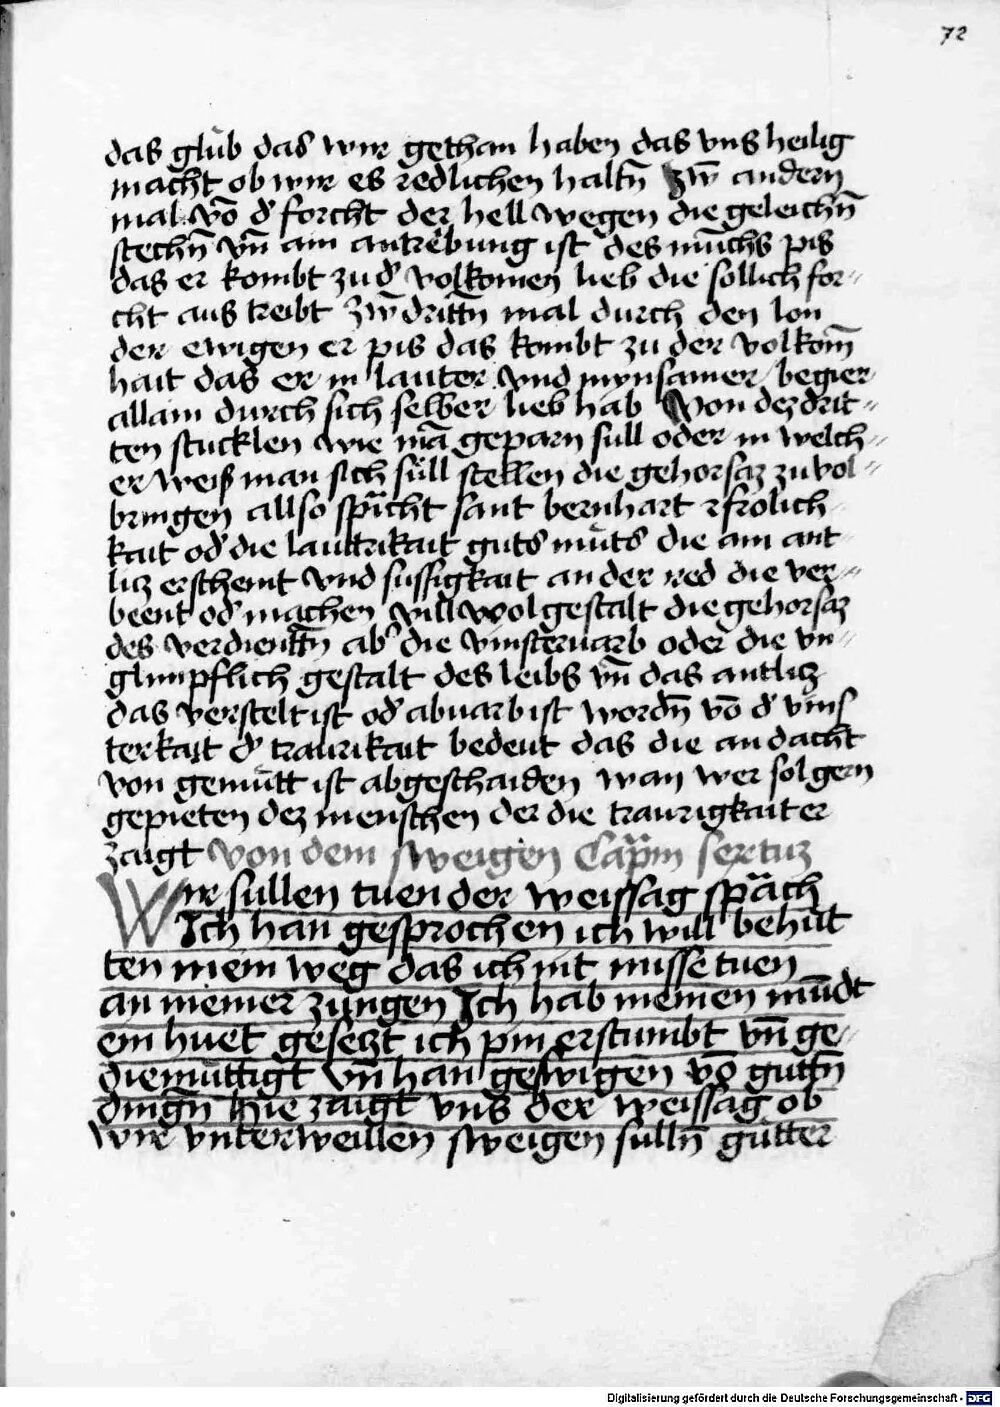 72
das glüb das wir gethan haben das vns heilig
macht ob wir es redlichen haltn̄ zw̄ andern
mal vō d' forcht der hell wegen die geleichn̄
stechn̄ vn̄ ain antrëbung ist des münchs pis
das er kombt zu d' volkomen lieb die sollich for=
cht aus treibt zw̄ drittn̄ mal durch den lon
der ewigen er pis das kombt zu der volkom̄
hait das er in lauter vnd mynsamer begier
allain durch sich selber lieb hab Von dez drit=
ten stucklen wie mā geparn sull oder in welch=
er weiß man sich süll stellen die gehorsaz zu vol=
bringen allso sprächt sant bernhart frolich
kait od' die lauttrikait guts müts die am ant
litz erscheint vnd sussigkait an der red die ver=
beent od' machen vill wolgestalt die gehorsaz
des verdienttn̄ ab' die vinstervarb oder die vn=
glimpflich gestalt des leibs vn̄ das antlitz
das verstelt ist od' abuarb ist wordn̄ vō d' vins
terkait d' traurikait bedeut das die andacht
von gemütt ist abgeschaiden wan wer sol gern
gepieten dez menschen der die traurigkait er
zaigt von dem sweigen Capm̄ sextuz
Wir sullen tuen der weissag spräch
Ich han gesprochen ich will behüt
ten mein weg das ich nit misse tuen
an meiner zungen Ich hab meinen mūdt
ein huet gesetzt ich pin erstumbt vn̄ ge=
diemüttigt vn̄ han geswigen vō guttn̄
dingn̄ Hie zaigt vns der weissag ob
wir vnterweillen sweigen sulln̄ gütter
Digitalisierung gefördert durch die Deutsche Forschungsgemeinschaft - DFG